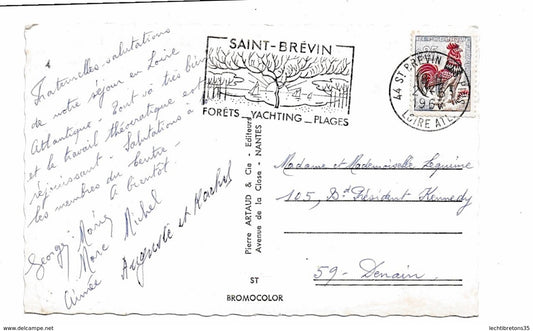 Fraternelles salutations
de notre séjour en Loire
Atlantique. Tout va très bien
et le travail théocratique est
réjouissant. Salutations à
les membres du Centre.
A bientôt.
Georges Marie
Marc Michel
Aimée Auguste et Rachel
SAINT-BRÉVIN
FORÊTS _ YACHTING _ PLAGES
44 ST BREVIN
LOIRE ATL.
196
Pierre ARTAUD & Cie - Editeurs
Avenue de la Close - NANTES
ST
BROMOCOLOR
Madame et Mademoiselle Lequime
105, Bd Président Kennedy
59 - Denain
lechtibretons35